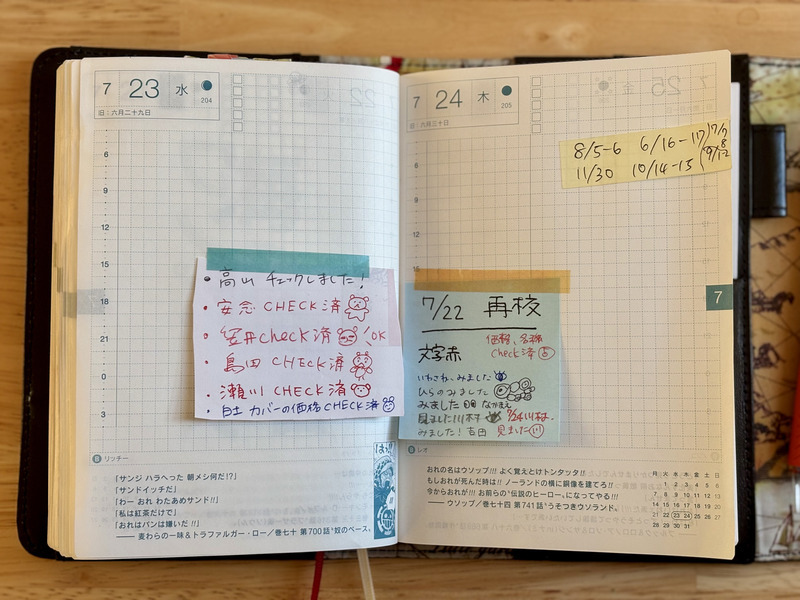 7 23 水 204
旧:六月二十九日
6
9
12
15
18
21
0
3
7
・高山 チェックしました!
・安念 CHECK 済
・笠井 check 済 OK
・島田 CHECK 済
・瀬川 CHECK 済
・白土 カバーの価格 CHECK 済
リッチー
「サンジ ハラへった 朝メシ何だ!?」
「サンドイッチだ」
「わー おれ わたあめサンド!!」
「私は紅茶だけで」
「おれはパンは嫌いだ!!」
── 麦わらの一味&トラファルガー・ロー/巻七十 第700話“奴のペース„
7 24 木 205
旧:六月三十日
8/5-6 6/16-17
11/30 10/14-15
6
9
12
18
21
0
3
7
7/22 再校
文字赤
価格、名称
Check 済
いわさね、みました
ひらの みました
みました なかまえ
見ました 川村
7/24 川村
みました! 吉田 見ました
レオ
おれの名はウソップ!!! よく覚えとけトンタッタ!!
もしおれが死んだ時は!! ノーランドの横に銅像を建てろ!!
今からおれが!!! お前らの“伝説のヒーロー„になってやる!!!
── ウソップ/巻七十四 第741話“うそつきウソランド„
月 火 水 木 金 土 日
1 2 3 4 5 6
7 8 9 10 11 12 13
14 15 16 17 18 19 20
21 22 23 24 25 26 27
28 29 30 31